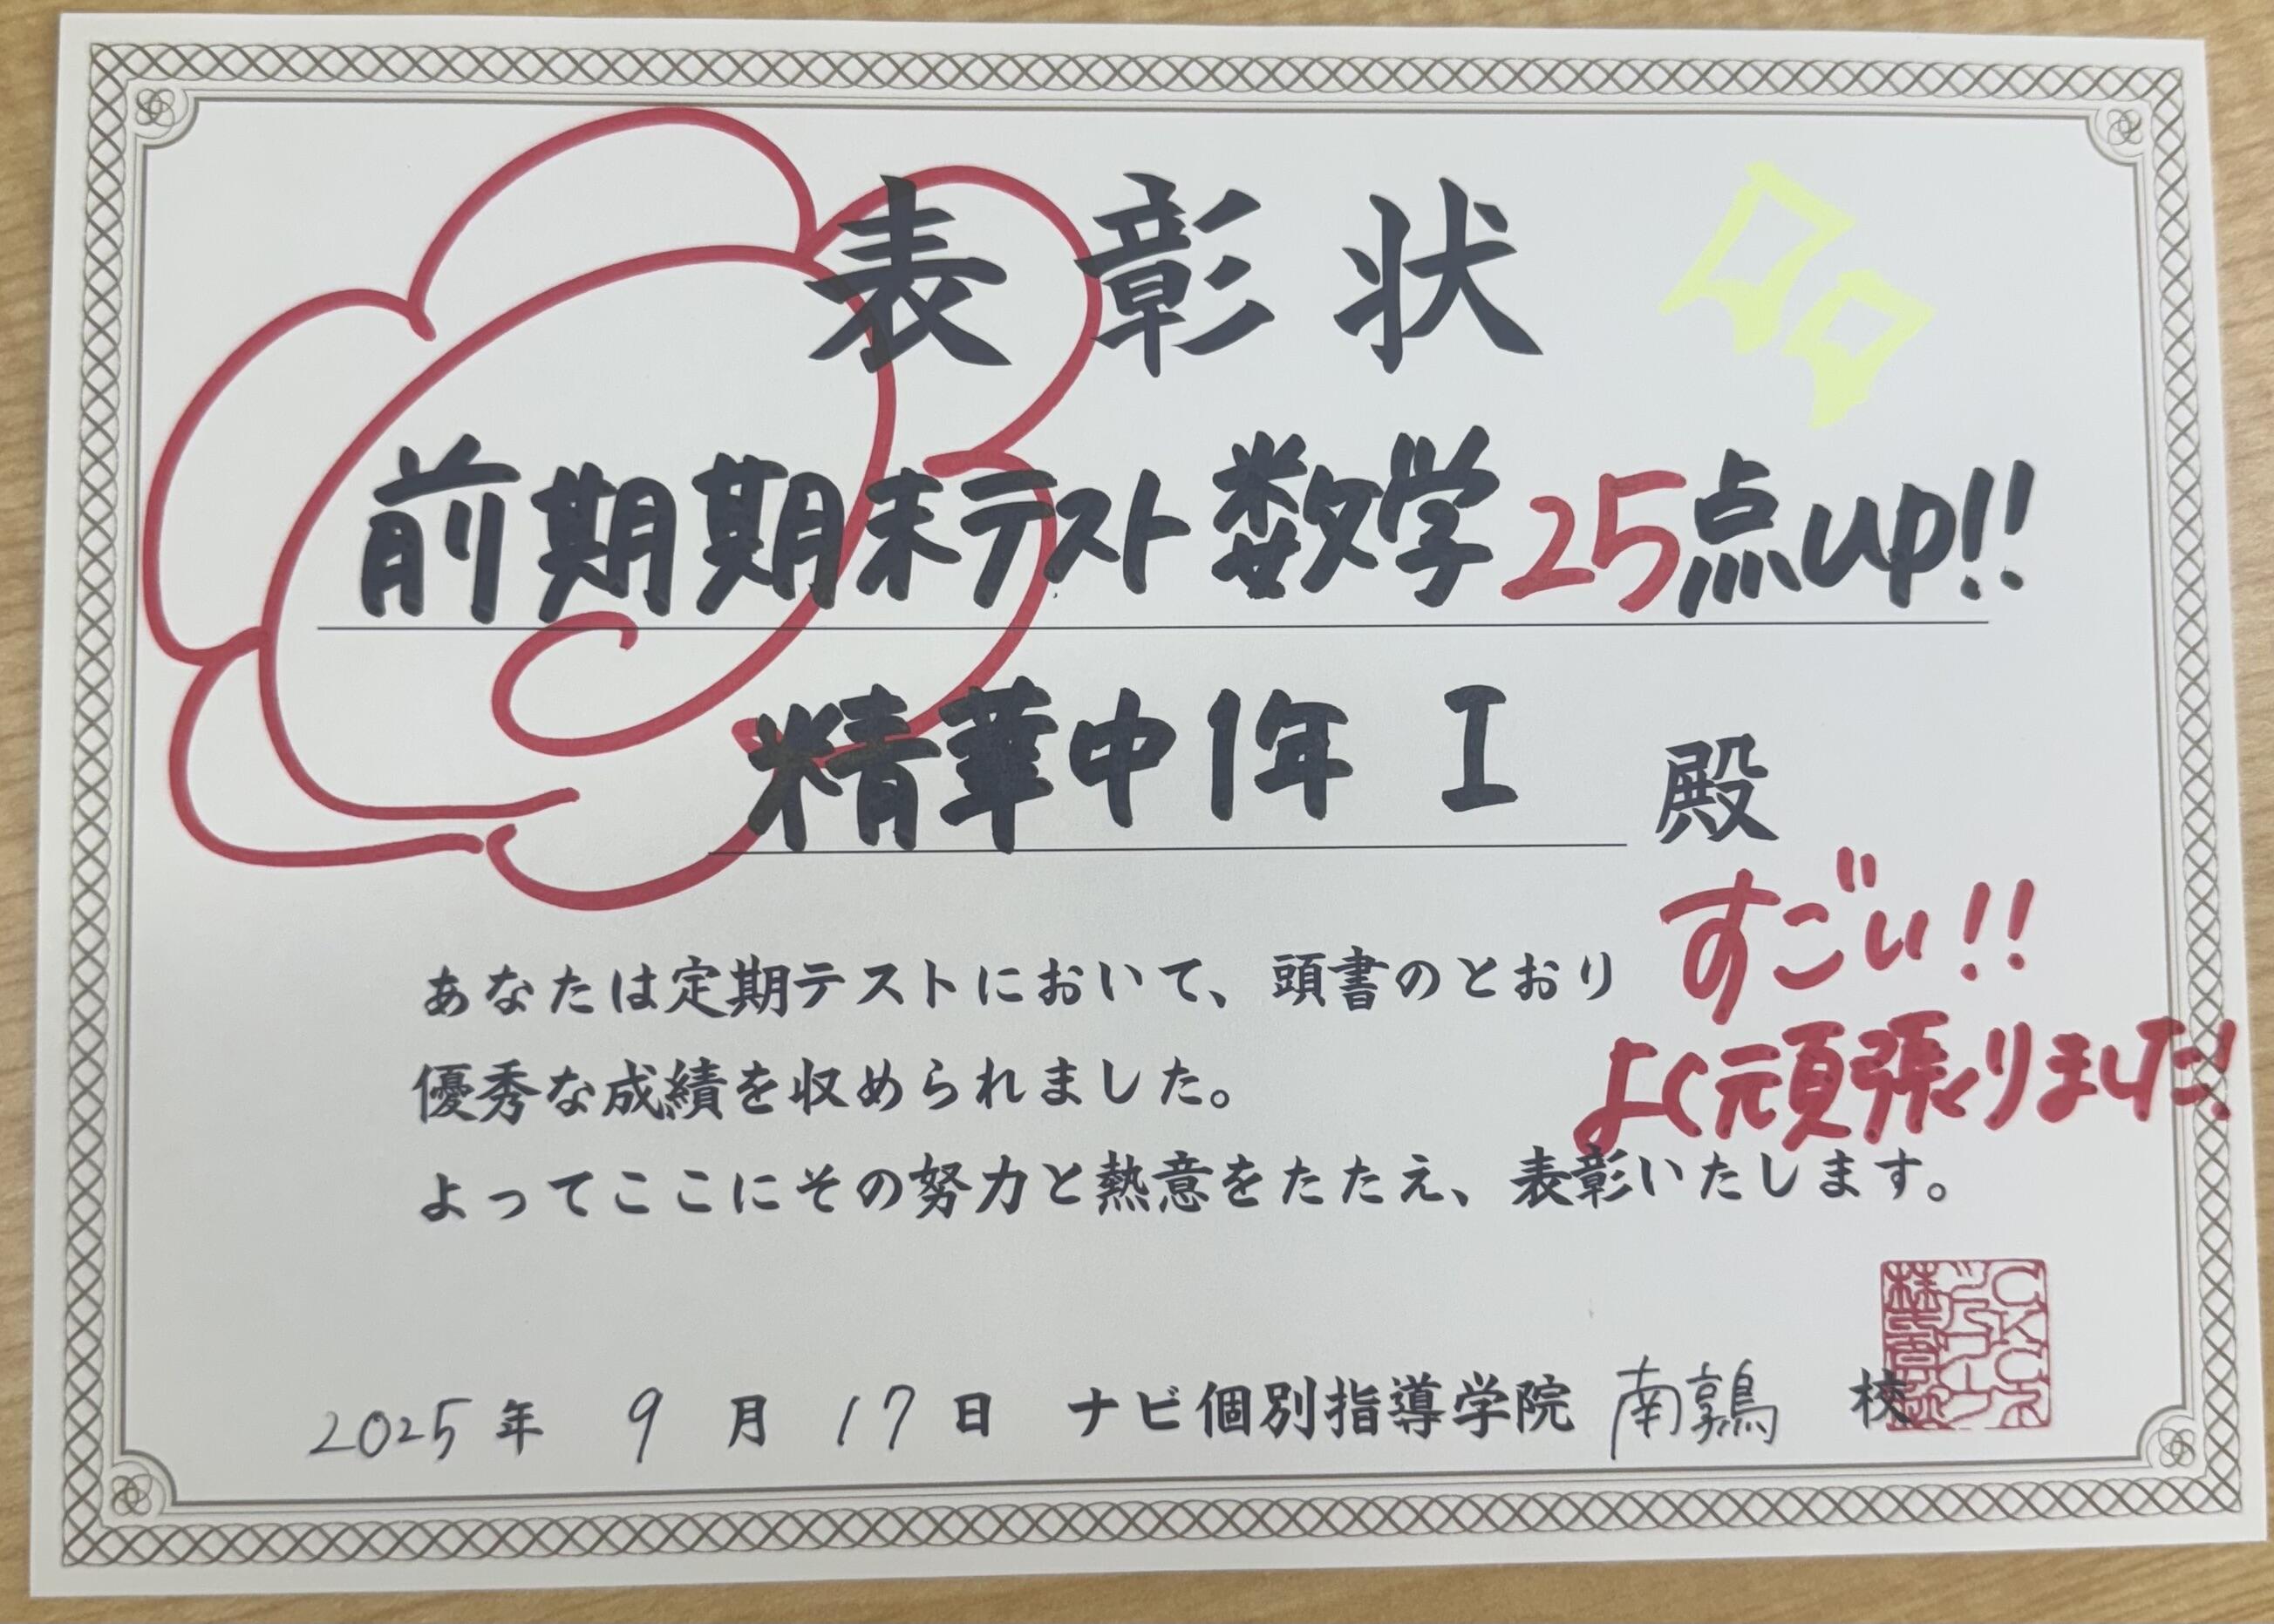 表彰状
前期期末テスト数学25点up!!
精華中1年 I 殿
すごい!!
よく頑張りました!
あなたは定期テストにおいて、頭書のとおり
優秀な成績を収められました。
よってここにその努力と熱意をたたえ、表彰いたします。
2025年 9月 17日 ナビ個別指導学院 南鶉 校